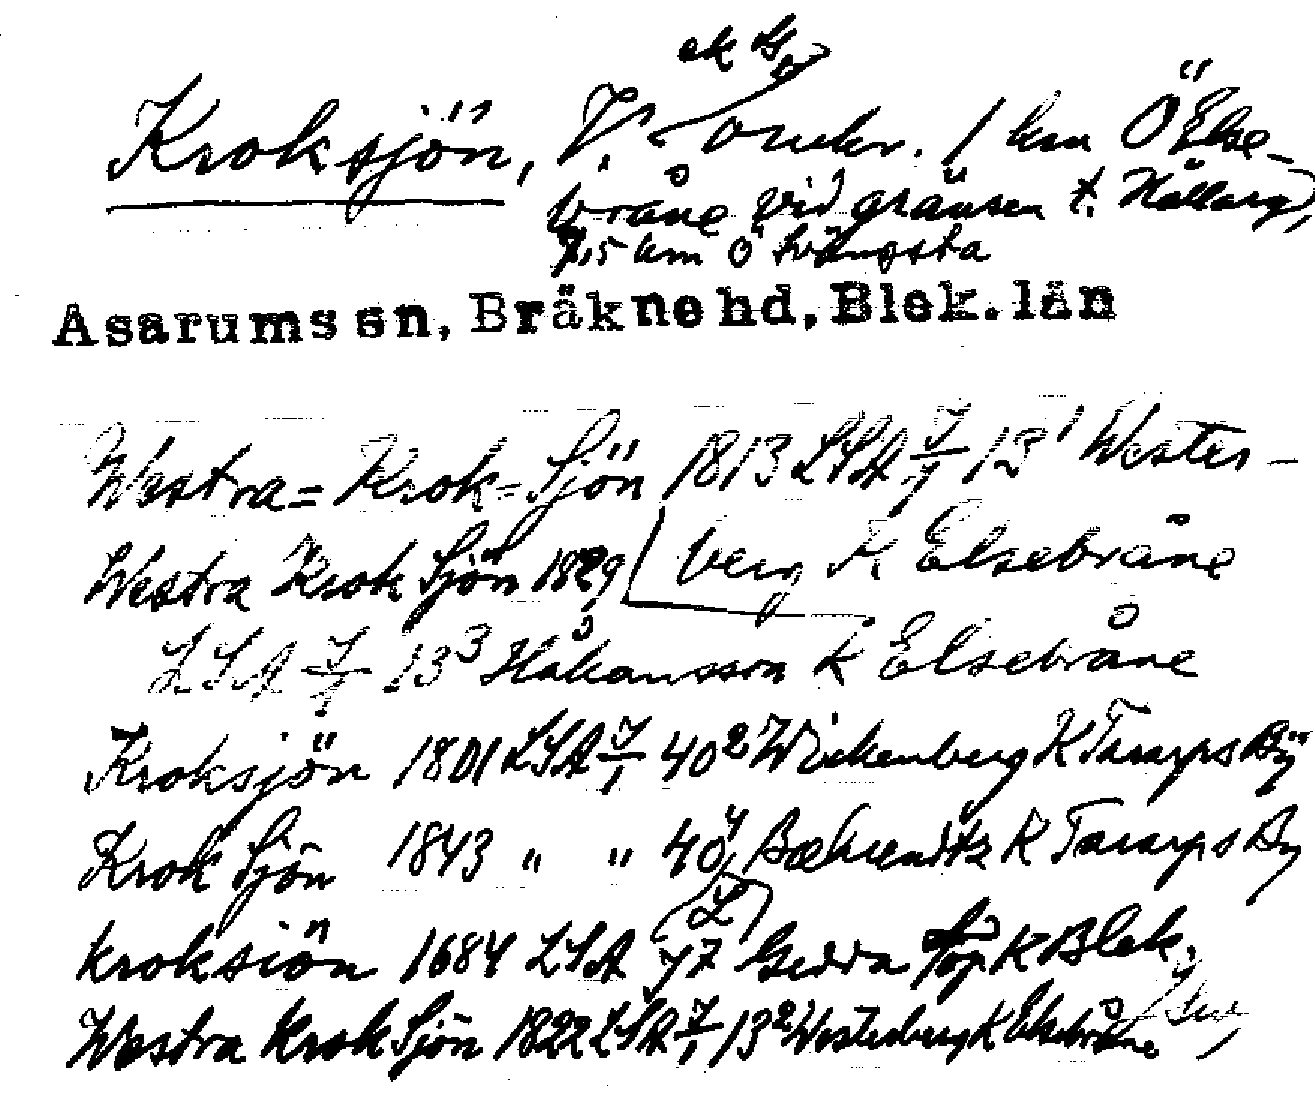 ek G
Kroksjön, V. omkr. 1 km Ö Else-
bråne vid gränsen t. Hällaryd,
7,5 km Ö Svängsta
Asarums sn, Bräkne hd, Blek. län
Westra=Krok=Sjön 1813 LSA 7/1 13¹ Wester-
berg K Elsebråne
Westra Krok Sjön 1829
LSA 7/1 13³ Håkansson K Elsebråne
Kroksjön 1801 LSA 7/1 40² Wickenberg K Tararps By
Krok Sjön 1843 " " 40⁴ K Tararps By
kroksiön 1684 LSA Y7 Gedda K Blek.
Westra Krok Sjön 1822 LSA 7/1 13² Westerberg K Elsebråne